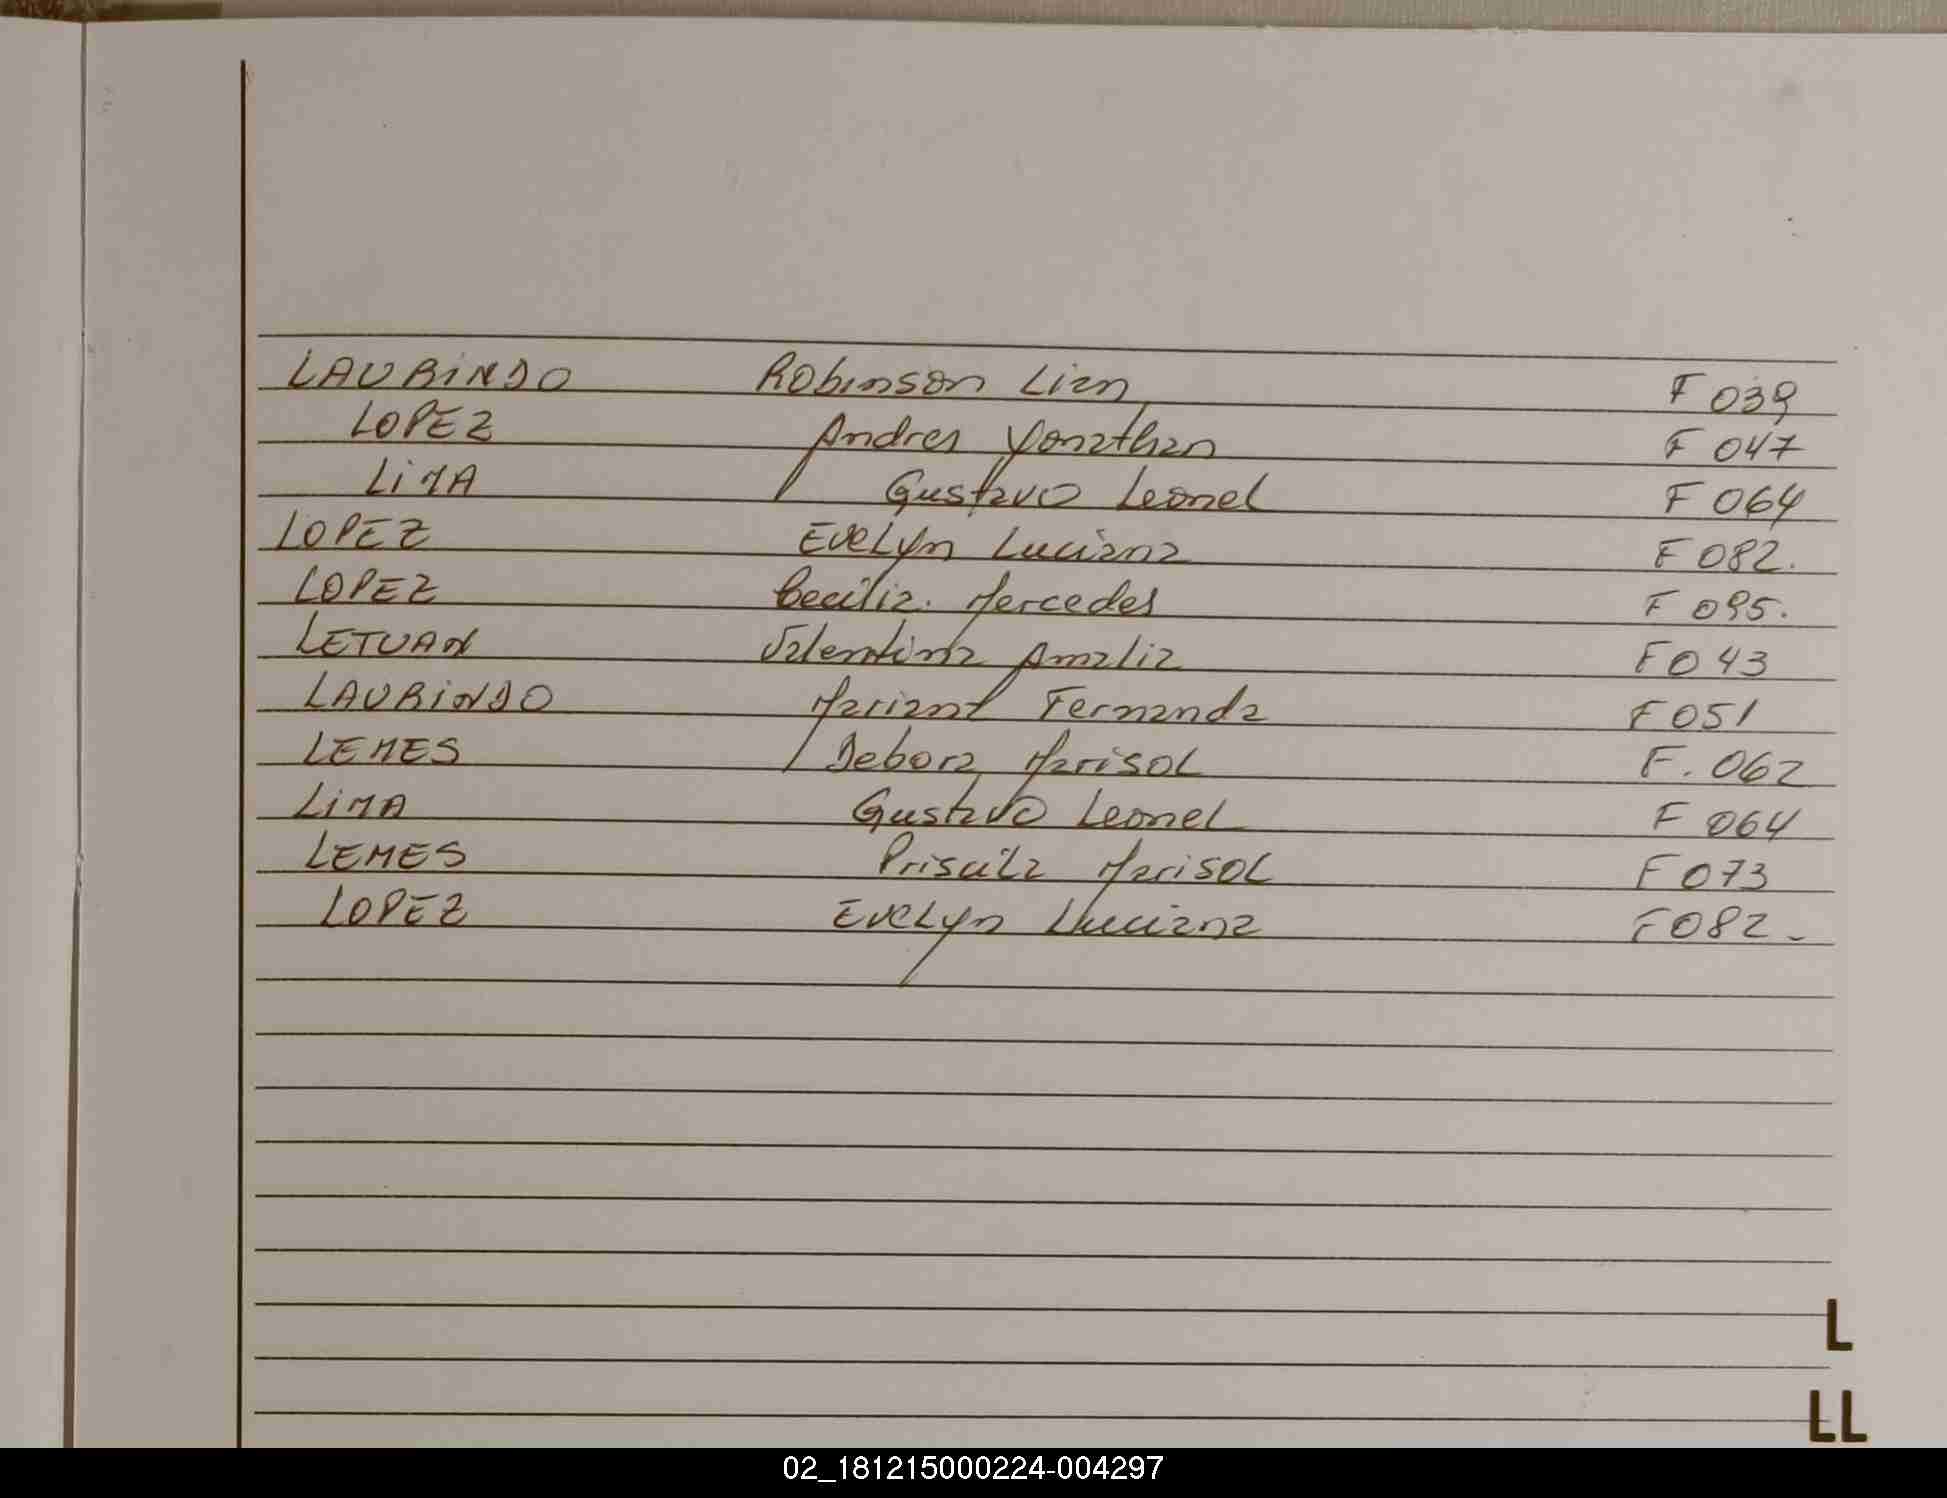 LAURINDO Robinson Lian F 039
LOPEZ Andres Yonathan F 047
LIMA Gustavo Leonel F 064
LOPEZ Evelyn Luciana F 082.
LOPEZ Cecilia. Mercedes F 095.
LETUAN Valentina Amalia F 043
LAURINDO Mariana Fernanda F 051
LEMES Debora Marisol F. 062
LIMA Gustavo Leonel F 064
LEMES Priscila Marisol F 073
LOPEZ Evelyn Luciana F 082-
L
LL
02_181215000224-004297